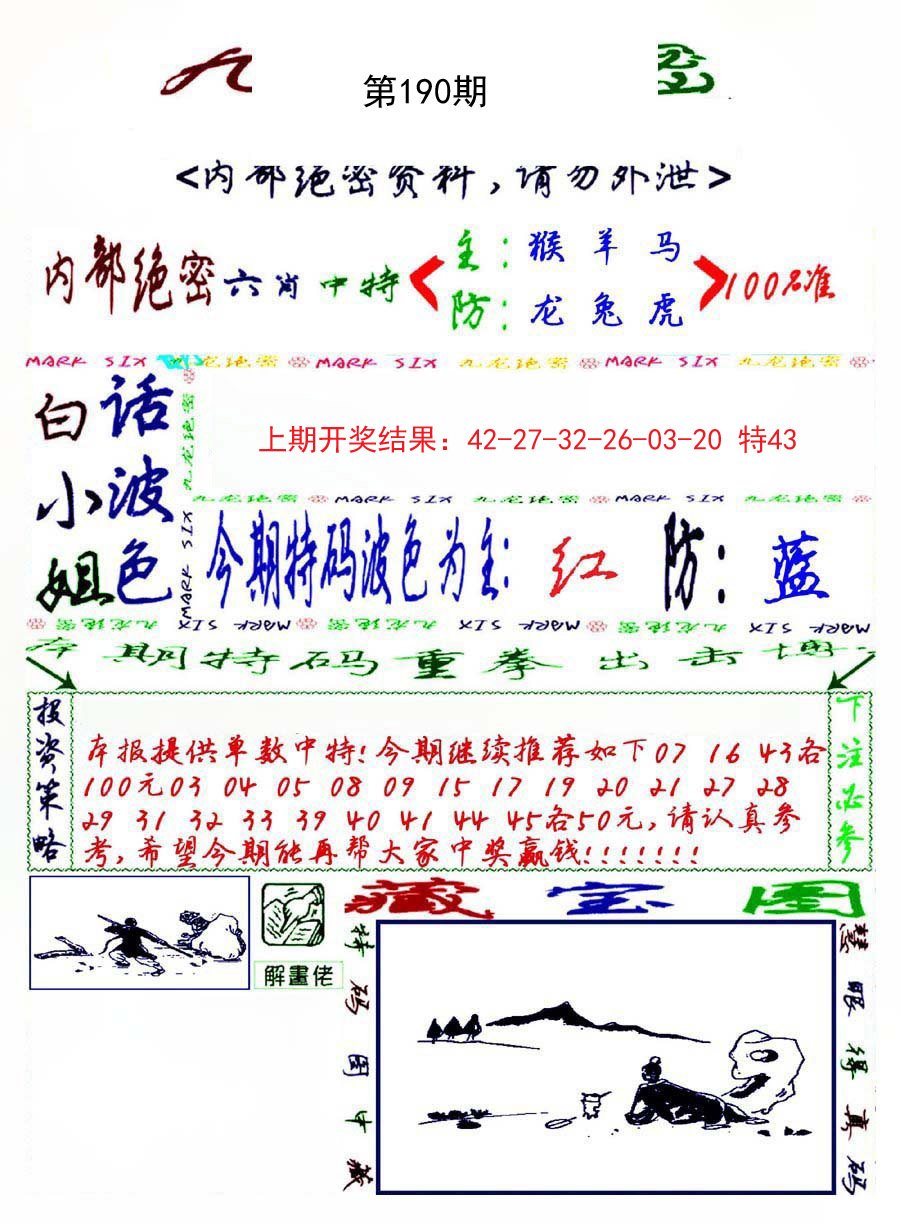 第190期
<内部绝密资料,请勿外泄>
内部绝密六肖中特
主:猴羊马
防:龙兔虎
100%准
MARK SIX 九龙绝密 MARK SIX 九龙绝密 MARK SIX 九龙绝密
白话
小波
姐色
九龙绝密
MARK SIX
上期开奖结果：42-27-32-26-03-20 特43
九龙绝密 MARK SIX 九龙绝密 MARK SIX 九龙绝密
今期特码波色为主:红 防:蓝
九龙绝密 MARK SIX 九龙绝密 MARK SIX 九龙绝密 MARK SIX
本期特码重拳出击博
投资策略
本报提供单数中特!今期继续推荐如下07 16 43各
100元03 04 05 08 09 15 17 19 20 21 27 28
29 31 32 33 39 40 41 44 45各50元,请认真参
考,希望今期能再帮大家中奖赢钱!!!!!!!
下注必参
解畫佬
藏宝图
特码图中藏
慧眼得真码